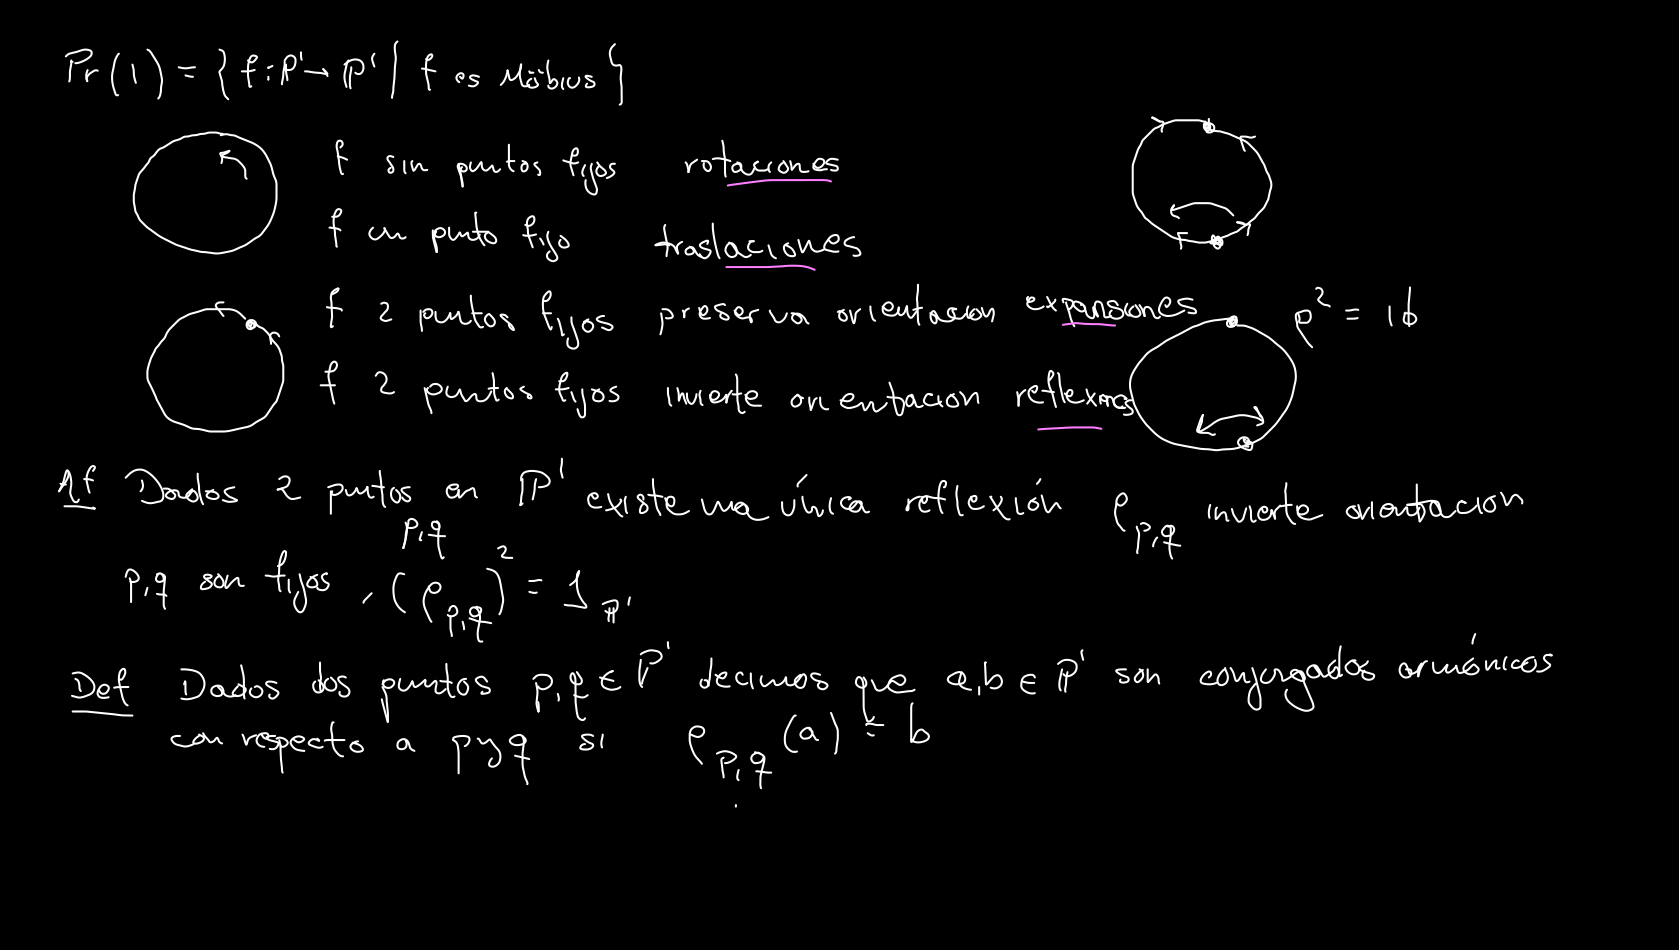 Pr(1) = { f: P¹ → P¹ | f es Möbius }
f sin puntos fijos rotaciones
f un punto fijo traslaciones
f 2 puntos fijos preserva orientacion expansiones
ρ² = id
f 2 puntos fijos invierte orientacion reflexiones
Af Dados 2 puntos en P¹ existe una única reflexión ρ_{p,q} invierte orientacion
p,q
p,q son fijos, (ρ_{p,q})² = 1_{P¹}
Def Dados dos puntos p,q ∈ P¹ decimos que a,b ∈ P¹ son conjugados armónicos
con respecto a p y q si ρ_{p,q}(a) = b